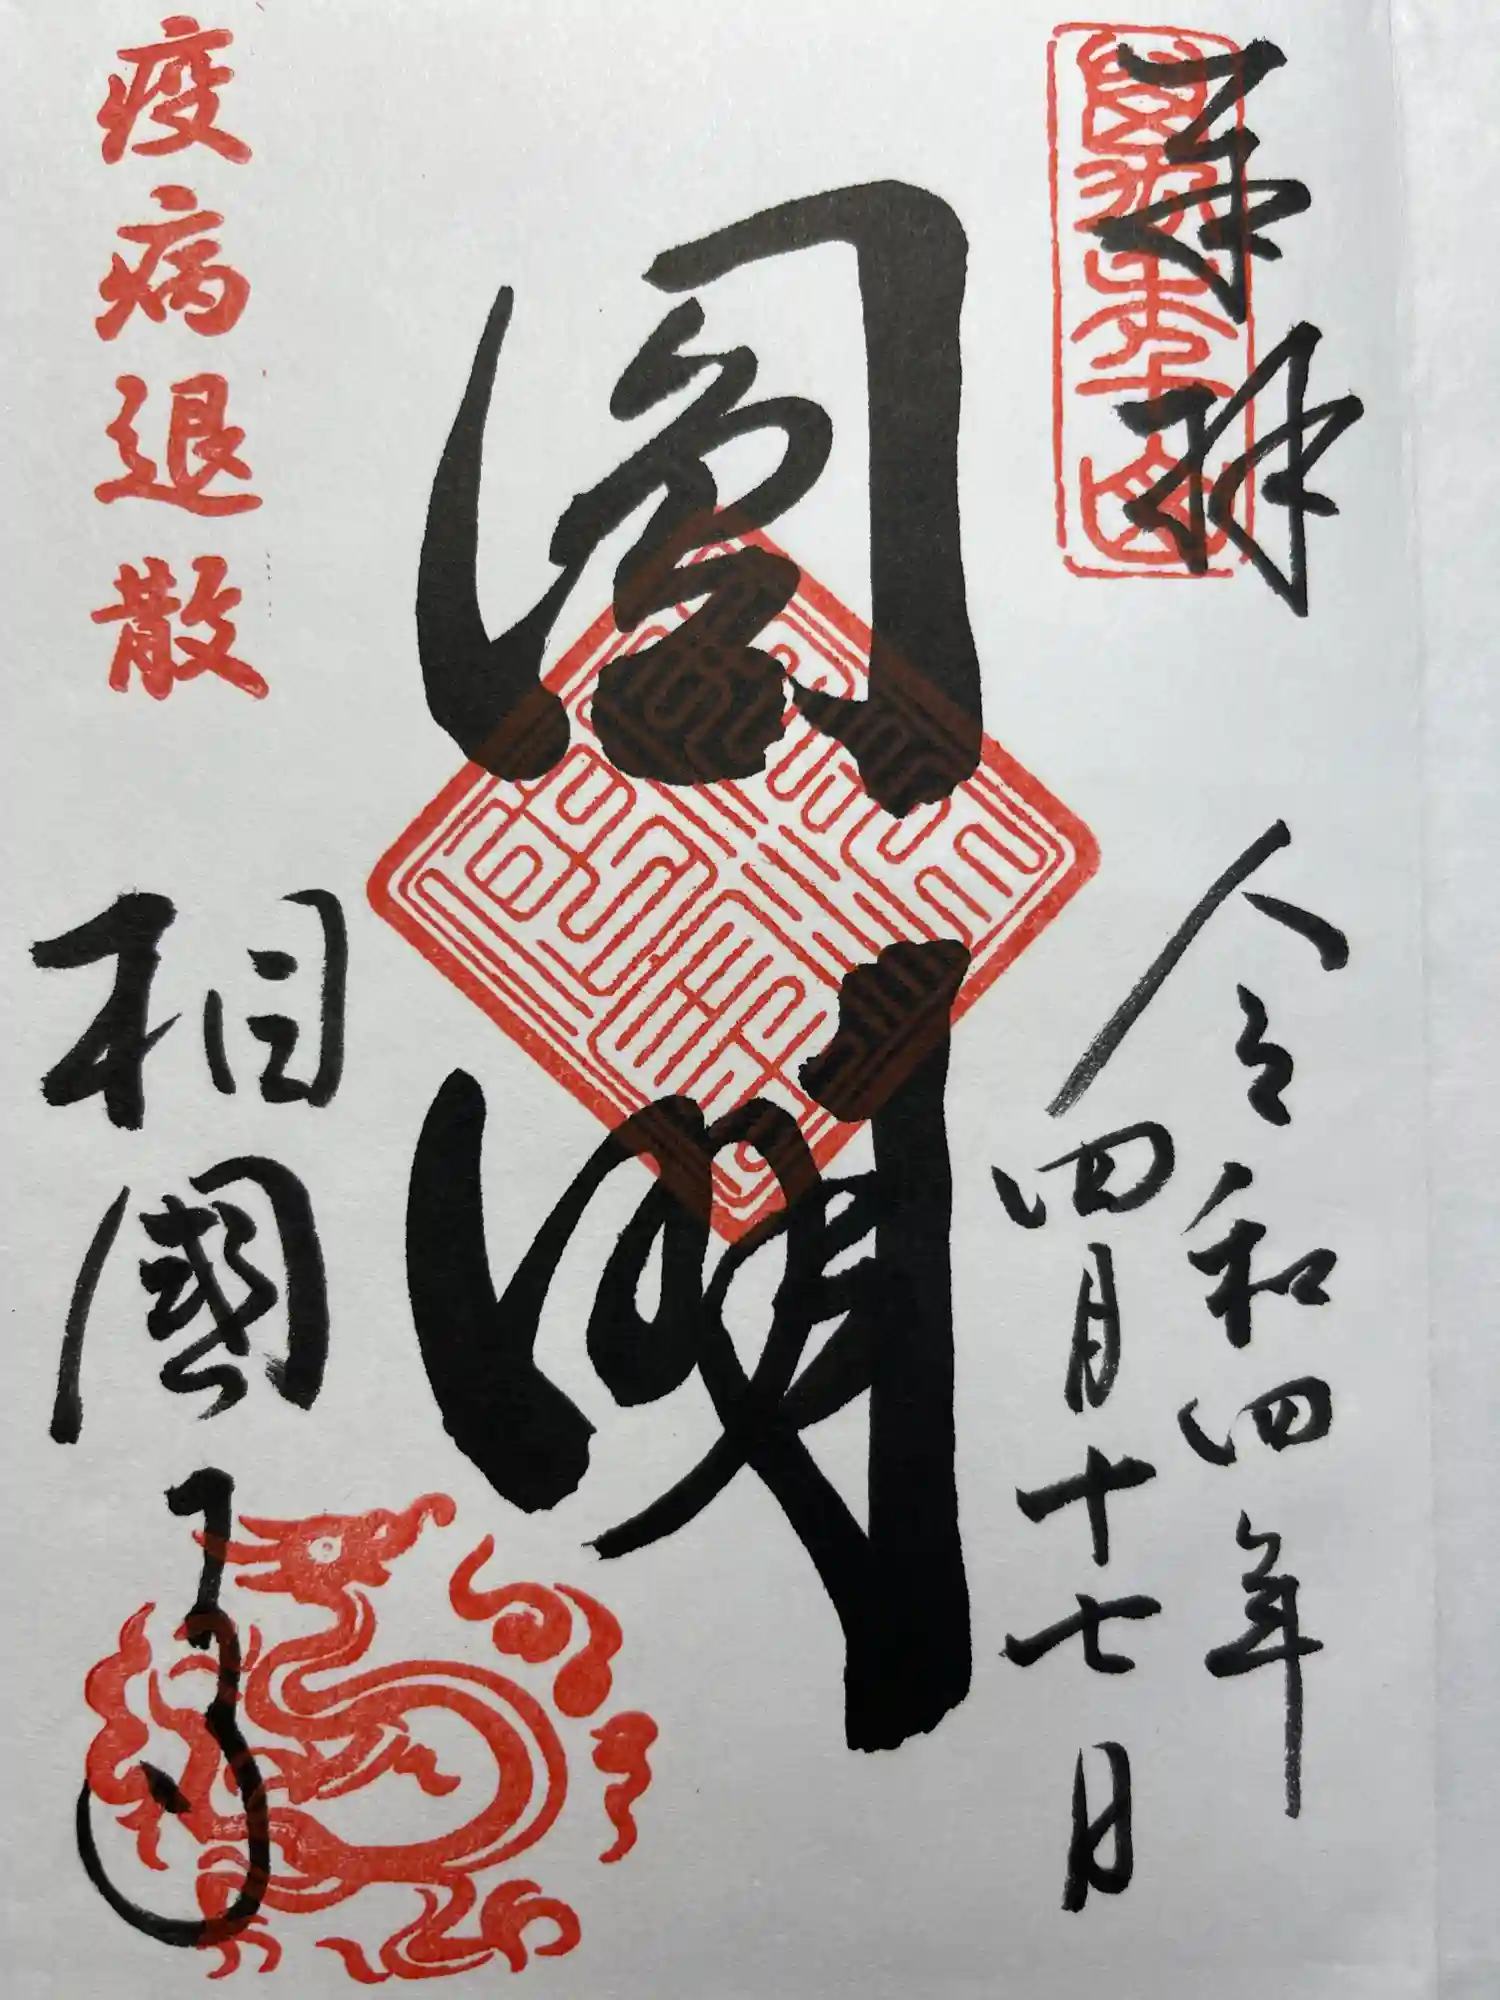 奉拜
令和四年
四月十七日
圓明
疫病退散
相國寺